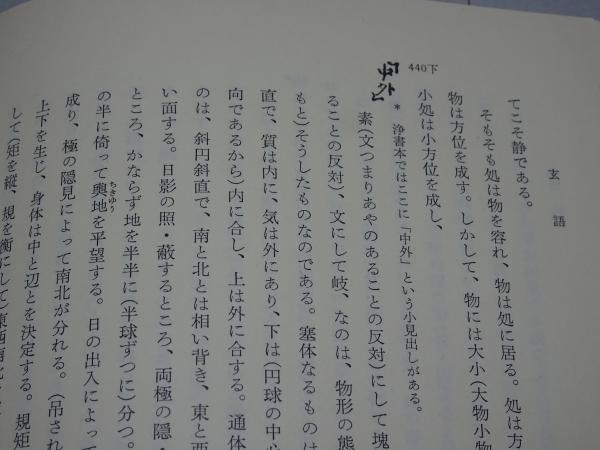 玄語
てこそ静である。
そもそも処は物を容れ、物は処に居る。処は方
物は方位を成す。しかして、物には大小(大物小物
小処は小方位を成し、
440下
「中外」
* 浄書本ではここに「中外」という小見出しがある。
素(文つまりあやのあることの反対)にして塊
ることの反対)、文にして岐、なのは、物形の態
もと)そうしたものなのである。塞体なるものは
直で、質は内に、気は外にあり、下は(円球の中心
向であるから)内に合し、上は外に合する。通体
のは、斜円斜直で、南と北とは相い背き、東と西
い面する。日影の照・蔽するところ、両極の隠・
ところ、かならず地を半半に(半球ずつに)分つ。
の半に倚って輿地を平望する。日の出入によって
ちきゆう
成り、極の隠見によって南北が分れる。(吊され
上下を生じ、身体は中と辺とを決定する。規矩
して(矩を縦、規を衡にして)東西南北